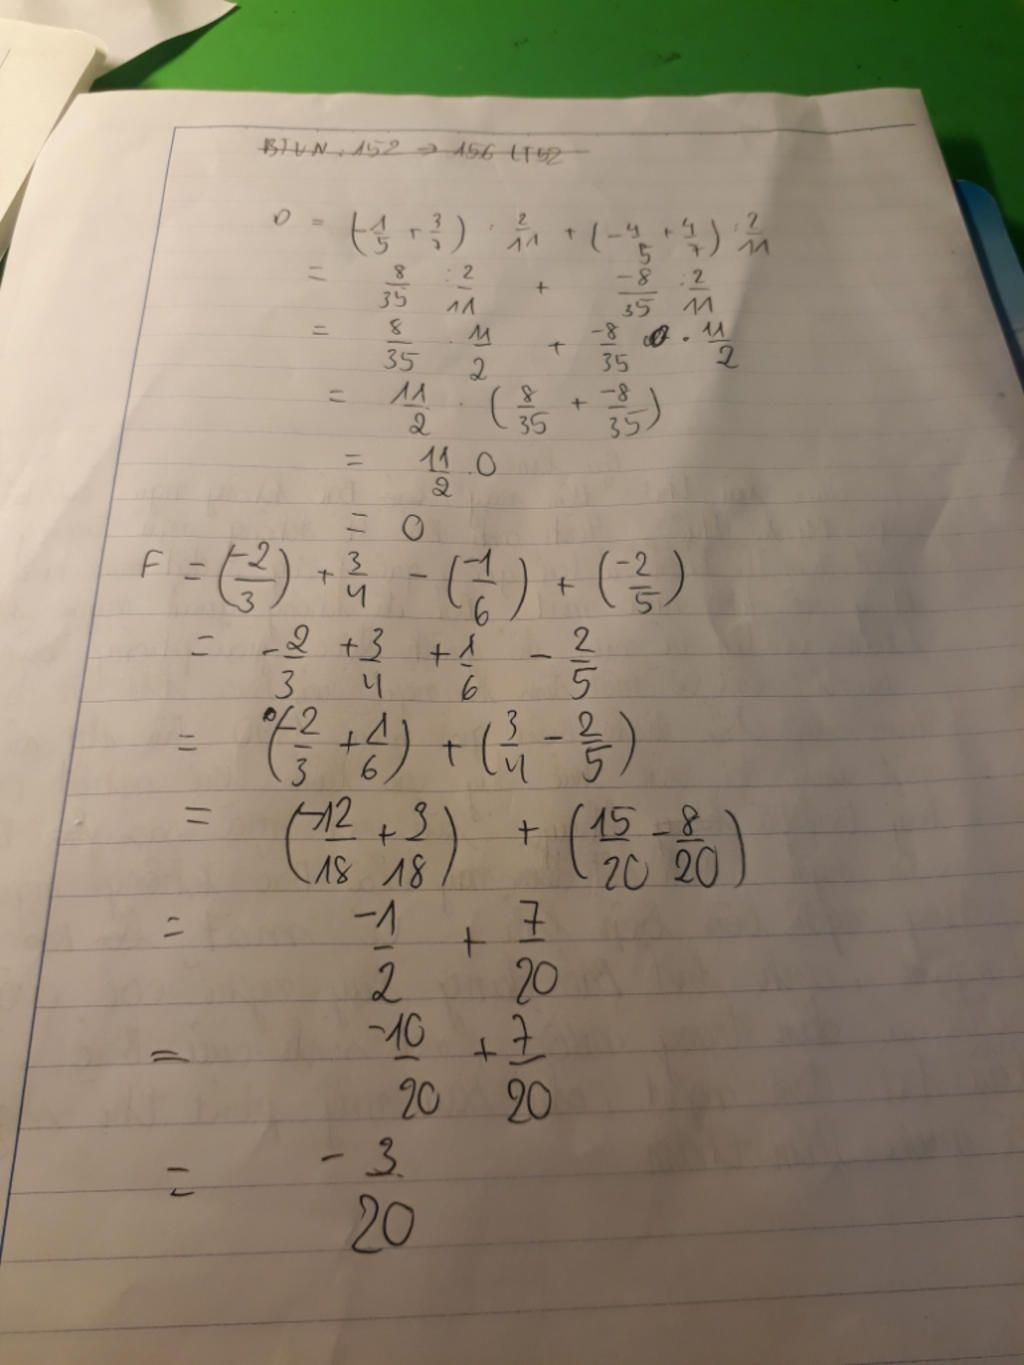 BTVN : 152 → 156 LT52
D = (-1/5 + 3/7) : 2/11 + (-4/5 + 4/7) : 2/11
= 8/35 : 2/11 + -8/35 : 2/11
= 8/35 . 11/2 + -8/35 . 11/2
= 11/2 . (8/35 + -8/35)
= 11/2 . 0
= 0
F = (-2/3) + 3/4 - (-1/6) + (-2/5)
= -2/3 + 3/4 + 1/6 - 2/5
= (-2/3 + 1/6) + (3/4 - 2/5)
= (-12/18 + 3/18) + (15/20 - 8/20)
= -1/2 + 7/20
= -10/20 + 7/20
= -3/20